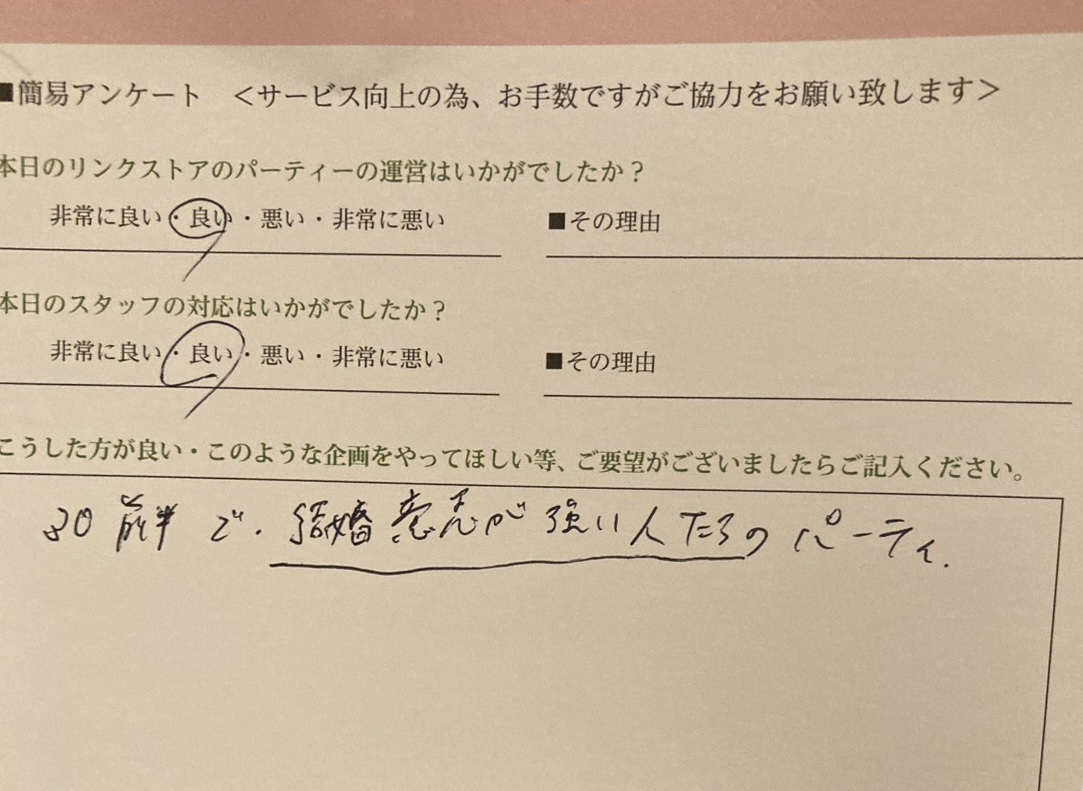 ■簡易アンケート ＜サービス向上の為、お手数ですがご協力をお願い致します＞
本日のリンクストアのパーティーの運営はいかがでしたか？
非常に良い・良い・悪い・非常に悪い ■その理由
本日のスタッフの対応はいかがでしたか？
非常に良い・良い・悪い・非常に悪い ■その理由
こうした方が良い・このような企画をやってほしい等、ご要望がございましたらご記入ください。
30前半で、結婚意志が強い人たちのパーティ.